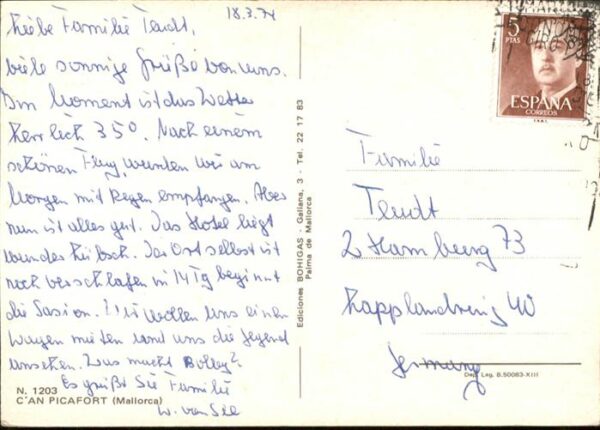 18.3.74
Liebe Familie Teudt,
viele sonnige Grüße von uns.
Im Moment ist das Wetter
herrlich 35°. Nach einem
schönen Flug, wurden wir am
Morgen mit Regen empfangen. Aber
nun ist alles gut. Das Hotel liegt
wunder hübsch. Der Ort selbst ist
noch verschlafen in 14 Tg beginnt
die Saison. Wir wollen uns einen
Wagen mieten und uns die Gegend
ansehen. Was macht
Es grüßt Sie Familie
W. van
N. 1203
C'AN PICAFORT (Mallorca)
Ediciones BOHIGAS - Galiana, 3 - Tel. 22 17 83
Palma de Mallorca
5
PTAS
ESPAÑA
CORREOS
Familie
Teudt
2 Hamburg 73
Kapplandring 40
Germany
Dep. Leg. B. 50083-XIII